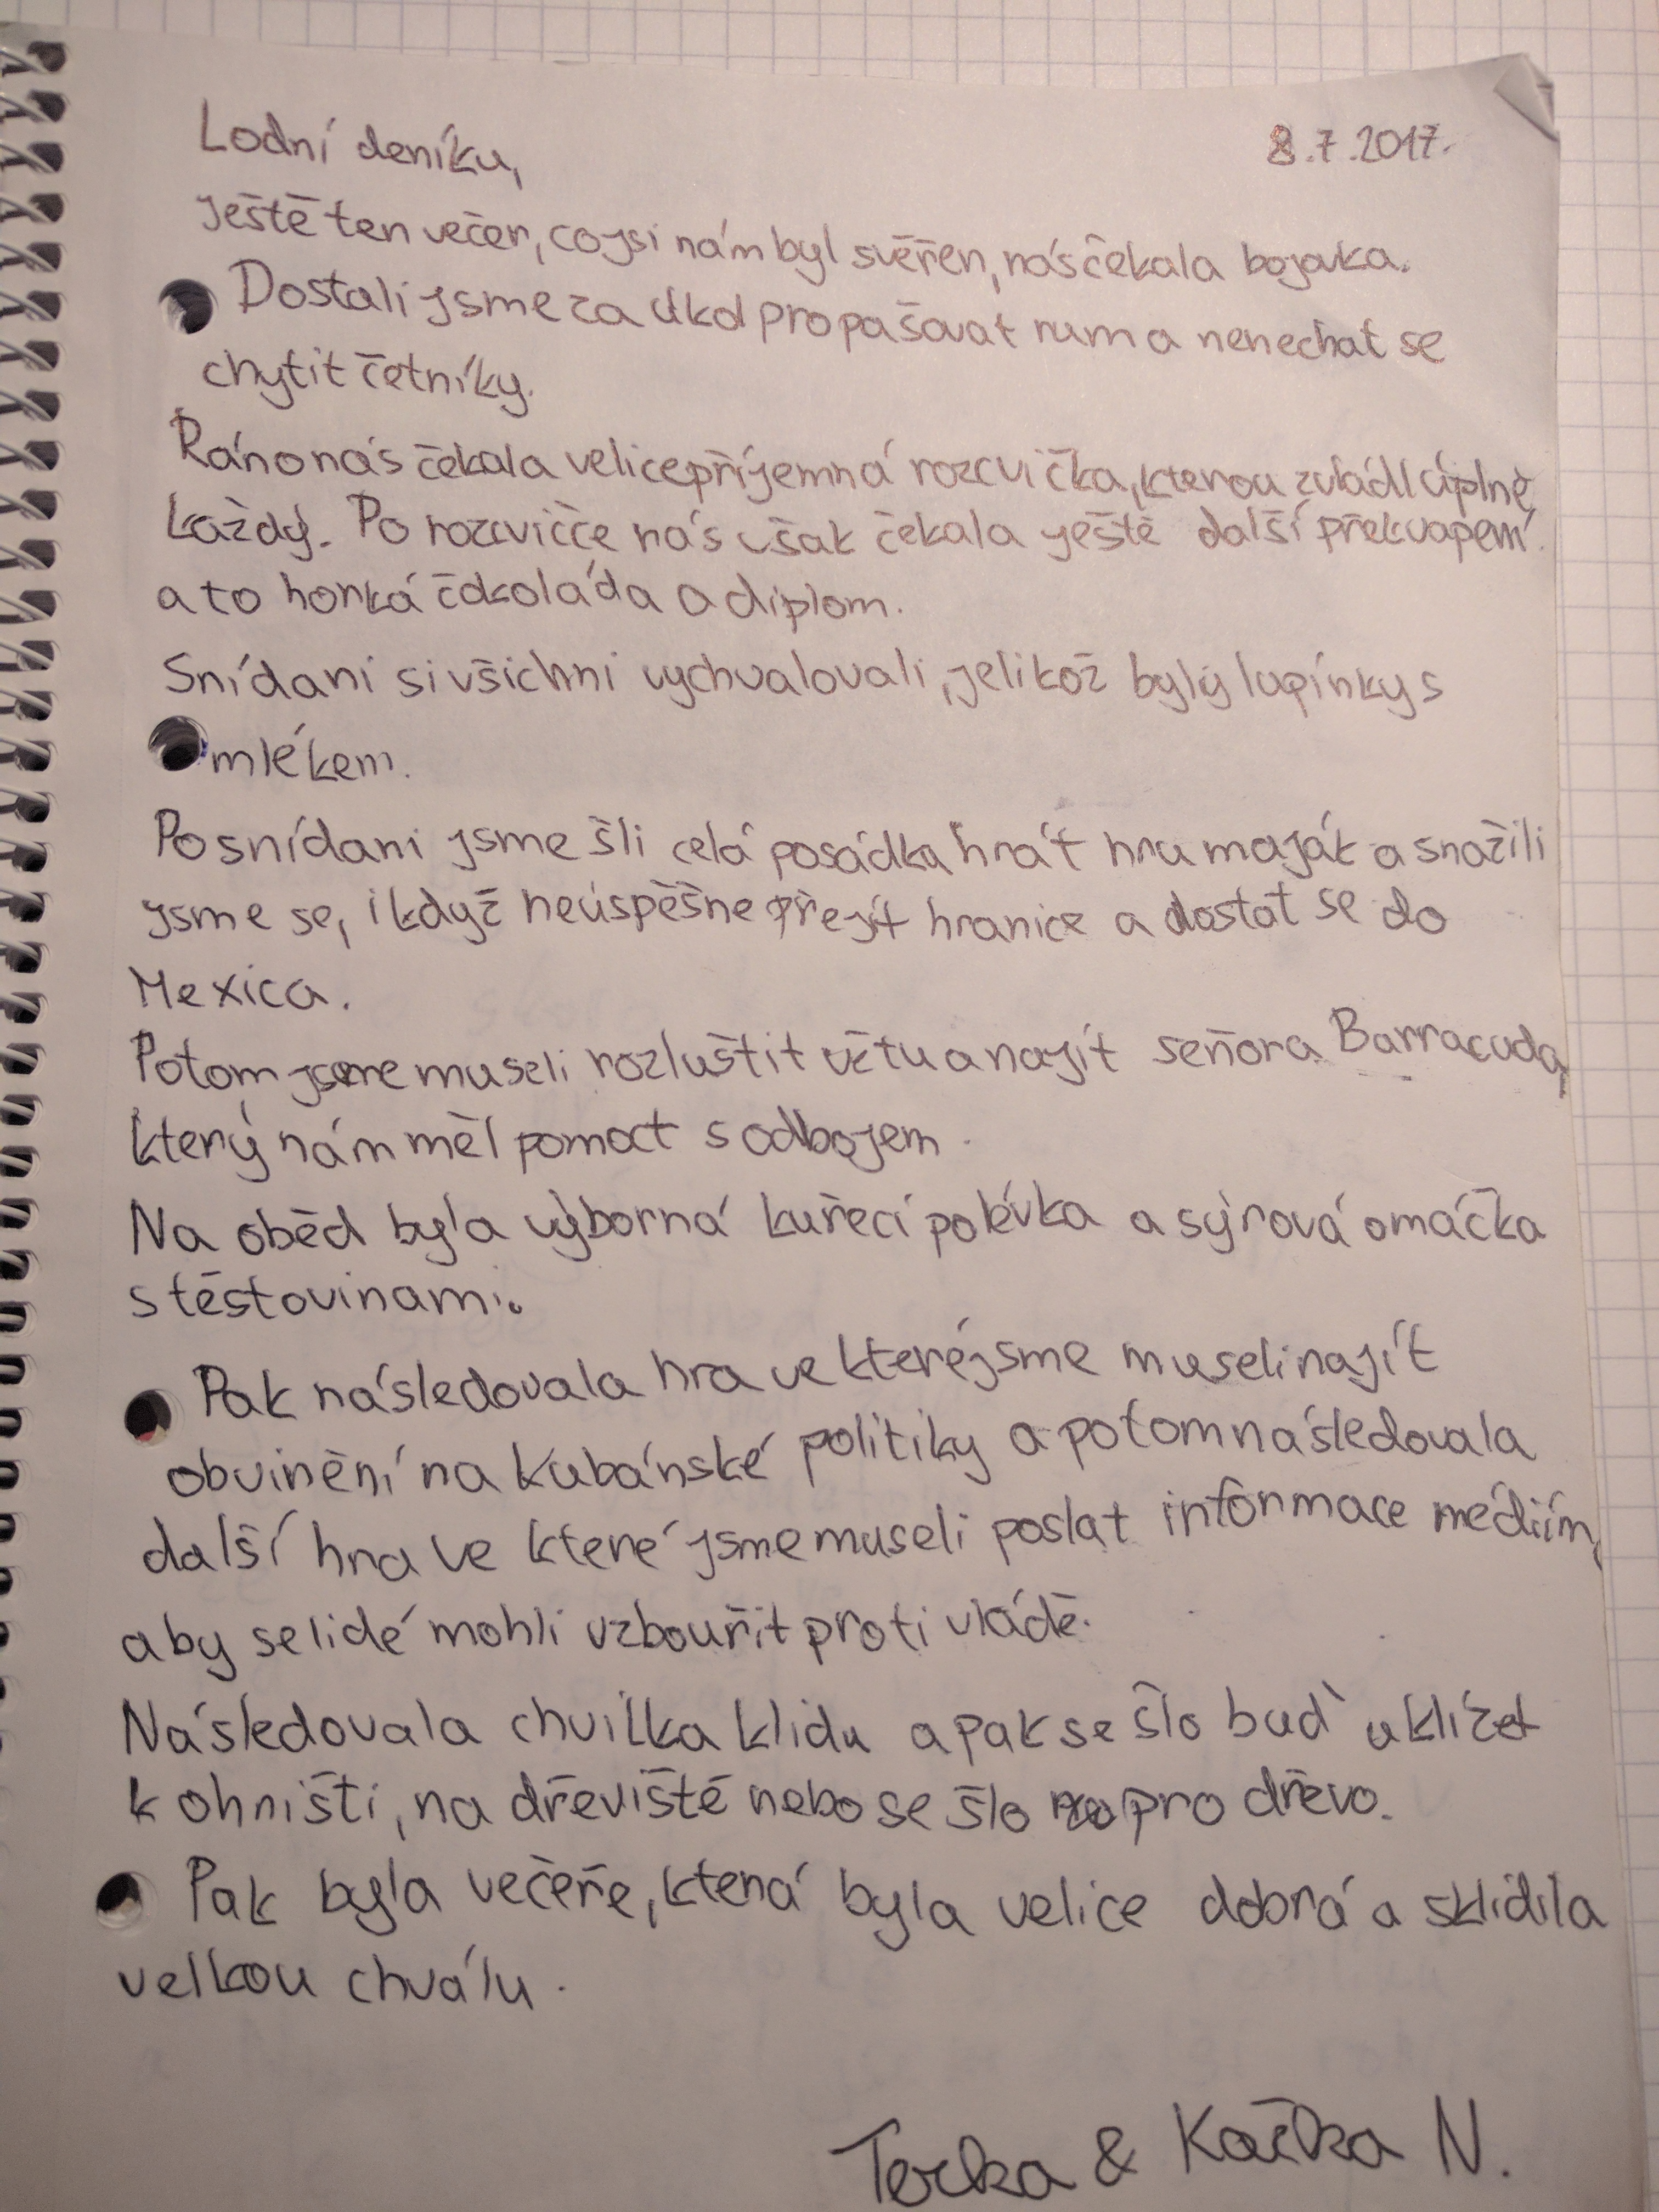 Lodní deníku,
8.7.2017.
ještě ten večer, co jsi nám byl svěřen, nás čekala bojovka.
Dostali jsme za úkol propašovat rum a nenechat se
chytit četníky.
Ráno nás čekala velice příjemná rozcvička, kterou zvládl úplně
každý. Po rozcvičce nás však čekala ještě další překvapení
a to horká čokoláda a diplom.
Snídani si všichni vychvalovali, jelikož byly lupínky s
mlékem.
Po snídani jsme šli celá posádka hrát hru maják a snažili
jsme se, i když neúspěšne přejít hranice a dostat se do
Mexica.
Potom jsme museli rozluštit větu a najít señora Barracuda,
který nám měl pomoct s odbojem.
Na oběd byla výborná kuřecí polévka a sýrová omáčka
s těstovinami.
Pak následovala hra ve které jsme museli najít
obvinění na Kubánské politiky a potom následovala
další hra ve které jsme museli poslat informace médiím,
aby se lidé mohli vzbouřit proti vládě.
Následovala chvilka klidu a pak se šlo buď uklízet
k ohništi, na dřeviště nebo se šlo pro dřevo.
Pak byla večeře, která byla velice dobrá a sklidila
velkou chválu.
Terka & Kačka N.